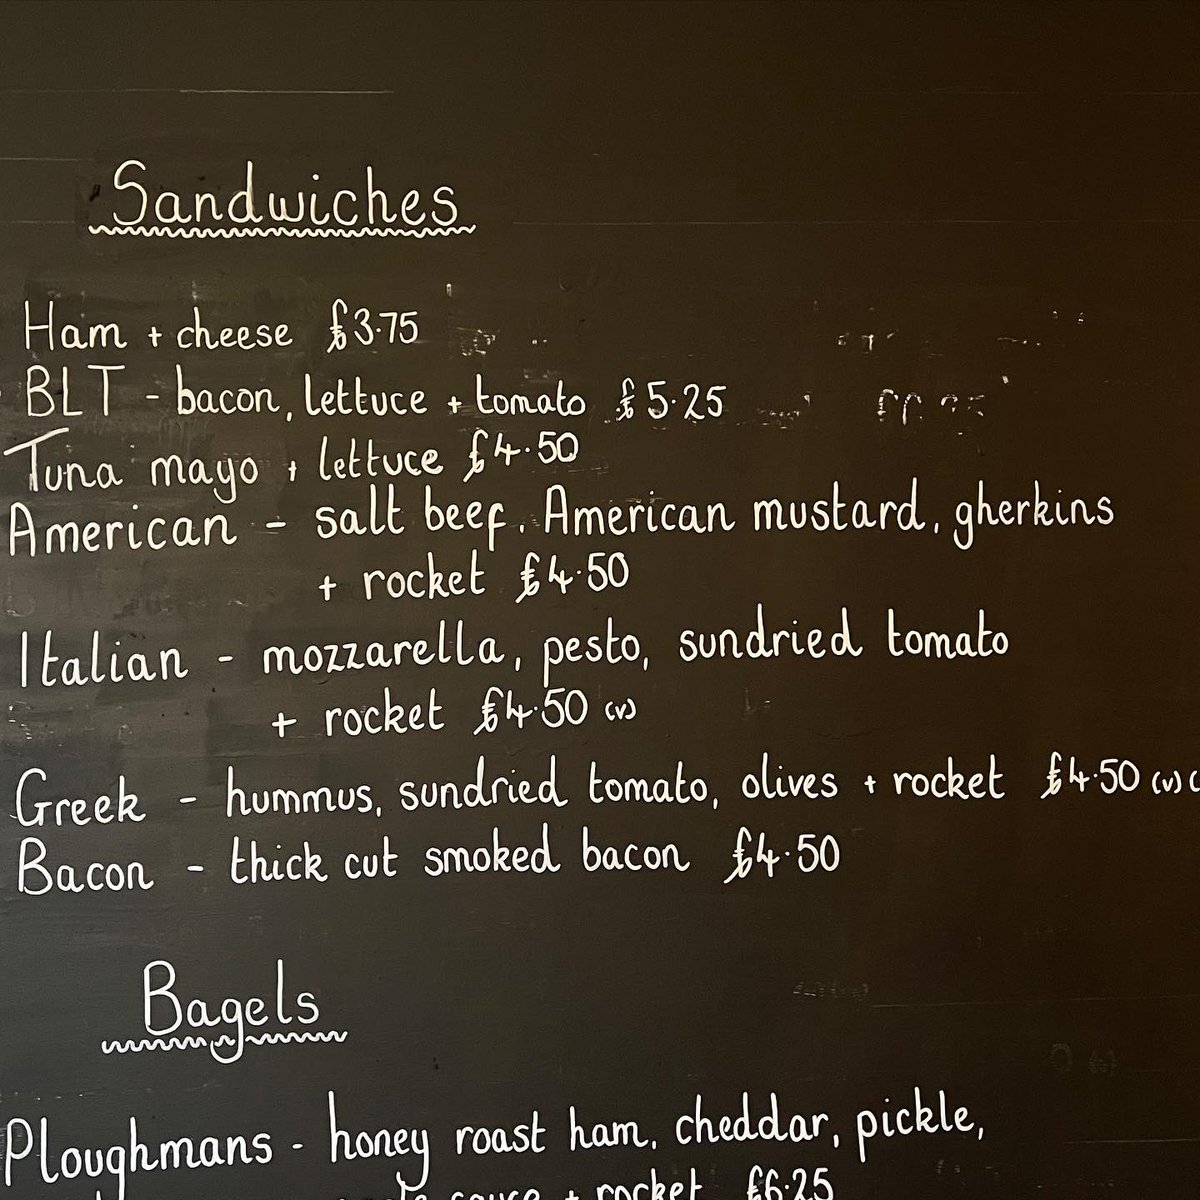 Sandwiches
Ham + cheese £3.75
BLT - bacon, lettuce + tomato £5.25
Tuna mayo + lettuce £4.50
American - salt beef, American mustard, gherkins
+ rocket £4.50
Italian - mozzarella, pesto, sundried tomato
+ rocket £4.50 (v)
Greek - hummus, sundried tomato, olives + rocket £4.50 (v) (
Bacon - thick cut smoked bacon £4.50
Bagels
Ploughmans - honey roast ham, cheddar, pickle,
sauce + rocket £6.25